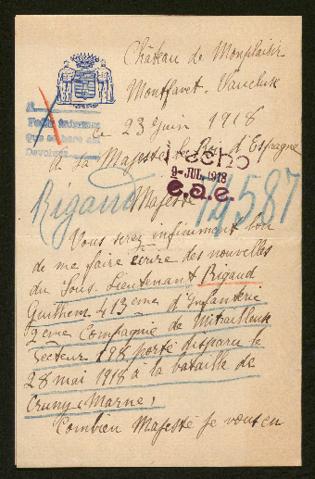 Château de Monplaisir
Montfavet. Vaucluse
le 23 Juin 1918
A
que se hace
Devolver
A Sa Majesté le Roi d'Espagne
Hecho
9-JUL.1918
e.a.e.
Rigaud
74587
Majesté
Vous serez infiniment bon
de me faire écrire des nouvelles
du Sous-Lieutenant Rigaud
Guilhem 413ème d'Infanterie
2ème Compagnie de Mitrailleuse
Secteur 198 porté disparu le
28 mai 1918 à la bataille de
Crugny (Marne)
Combien Majesté je vous en